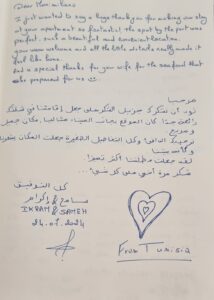 Dear Maximilians
I just wanted to say a huge thank you for making our stay
at your apartment so fantastic! The spot by the port was
perfect, such a beautiful and convenient location.
your warm welcome and all the little details really made it
feel like home.
And a special thanks for your wife for the sea food that
she prepared for me
مرحبا
نود أن نشكرك جزيل الشكر على جعل إقامتنا في شقتك
رائعة جدا كان الموقع بجانب الميناء مثاليا، مكان جميل
و مريح
ترحيبك الدافئ وكل التفاصيل الصغيرة جعلت المكان يشعرنا
لقد جعلت عطلتنا أكثر تميزا
شكر مرة أخرى على كل شيء...
كل التوفيق
سامح & إكرام
IKRAM & SAMEH
24.01.2024
From Tunisia